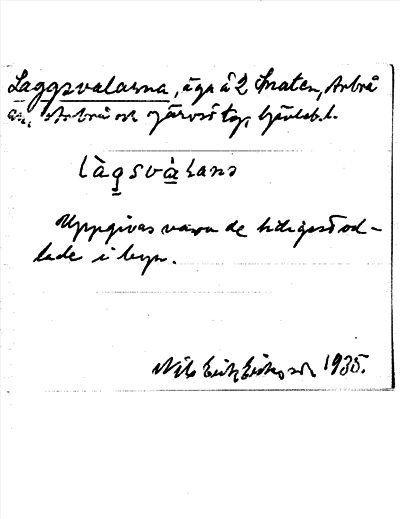 Laggsvalarna, ägr å 2 Smaten, Arbrå
sn, Arbrå och Järvsö tg, Gävlebl.
làgsvàlano
Uppgivas vara de tidigast od-
lade i byn.
Nils Erik Eriksson 1935.